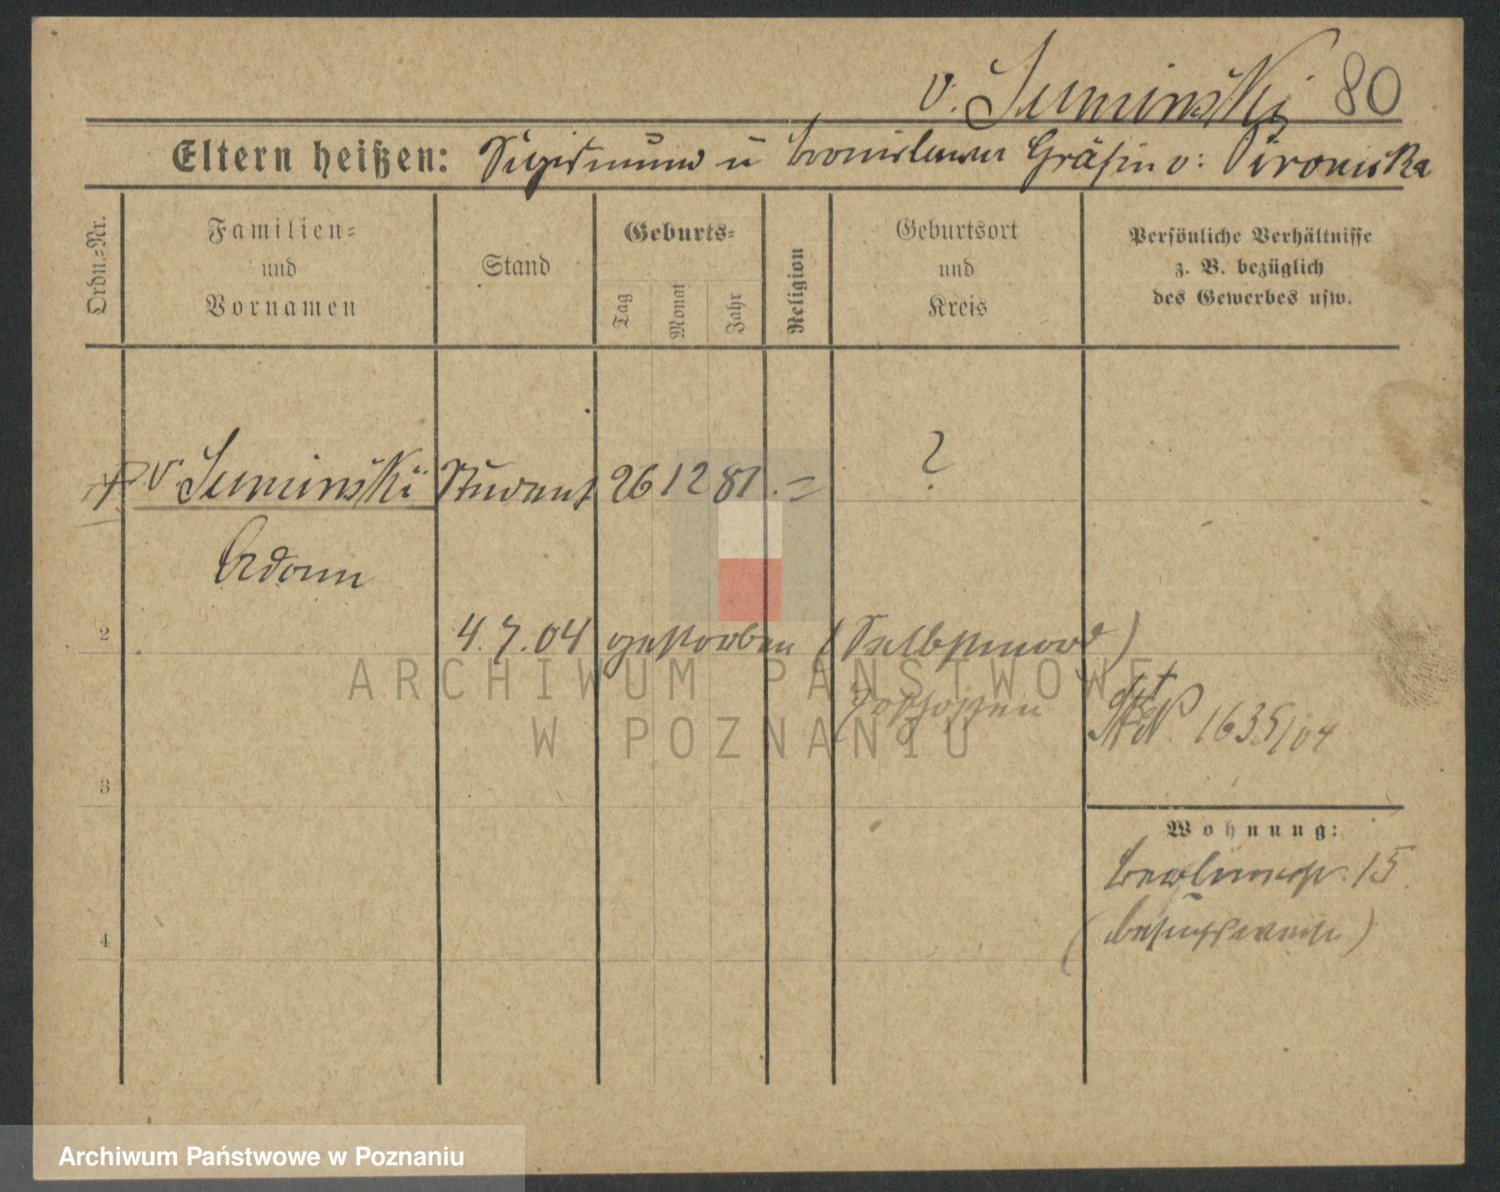 v. Sumiński 80
Eltern heißen: Sigismund u Bronislawa Gräfin v: Pivoniska
Ordn.-Nr.
Familien-
und
Vornamen
Stand
Geburts-
Tag
Monat
Jahr
Religion
Geburtsort
und
Kreis
Persönliche Verhältnisse
z. B. bezüglich
des Gewerbes usw.
v Sumiński Student 26 12 81 . = ?
Adam
2
4. 7. 04 gestorben (Selbstmord)
erschossen
1635/04
3
Wohnung:
Berlinerstr. 15
(besuchsweise)
4
ARCHIWUM PAŃSTWOWE
W POZNANIU
Archiwum Państwowe w Poznaniu